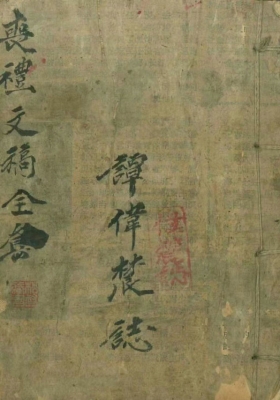 喪禮文稿全集
譚偉農誌